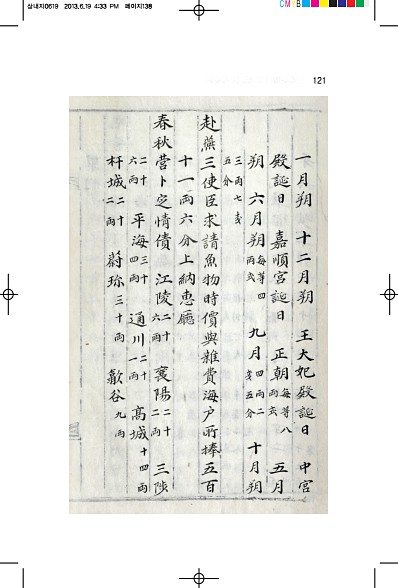 삼내지0619  2013.6.19 4:33 PM  페이지138
CMYB
121
一月朔 十二月朔 王大妃殿誕日 中宮
殿誕日 嘉順宮誕日 正朝每等八兩式 五月
朔 六月朔每等四兩式 九月四兩二戔五分 十月朔
三兩七戔五分
赴燕三使臣求請魚物時價與雜費海戶所捧五百
十一兩六分上納惠廳
春秋營卜定情債 江陵二十六兩 襄陽二十二兩 三陟
二十六兩 平海三十四兩 通川二十一兩 高城十四兩
杆城二十二兩 蔚珍三十兩 歙谷九兩